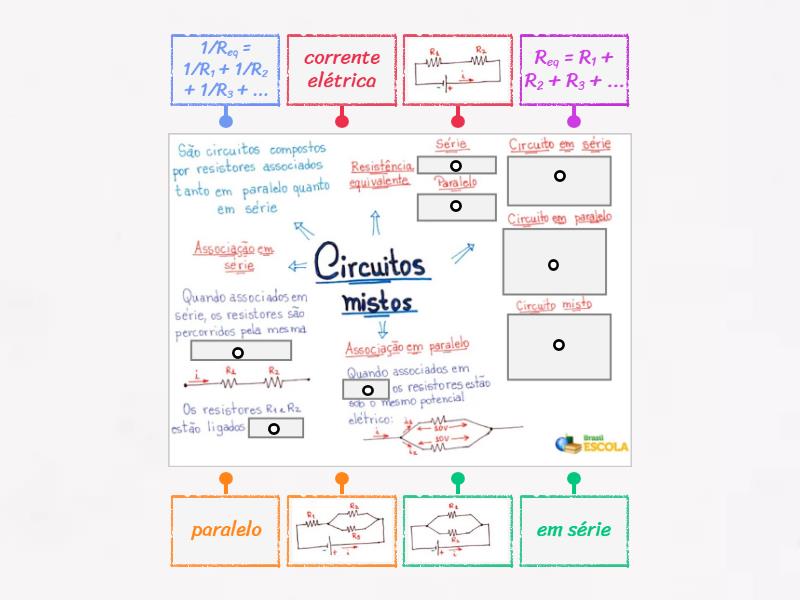 1/Req =
1/R₁ + 1/R₂
+ 1/R₃ + ...
corrente
elétrica
R₁ R₂
i
- +
Req = R₁ +
R₂ + R₃ + ...
São circuitos compostos
por resistores associados
tanto em paralelo quanto
em série
Resistência
equivalente
Série
Paralelo
Circuito em série
Circuito em paralelo
Circuito misto
Associação em
série
Circuitos
mistos
Quando associados em
série, os resistores são
percorridos pela mesma
i R₁ R₂
Os resistores R₁ e R₂
estão ligados
Associação em paralelo
Quando associados em
os resistores estão
sob o mesmo potencial
elétrico:
i i₁ 10V
10V
i₂
Brasil
ESCOLA
paralelo
R₁ R₂
R₃
- + i
R₁
R₂
- + i
em série